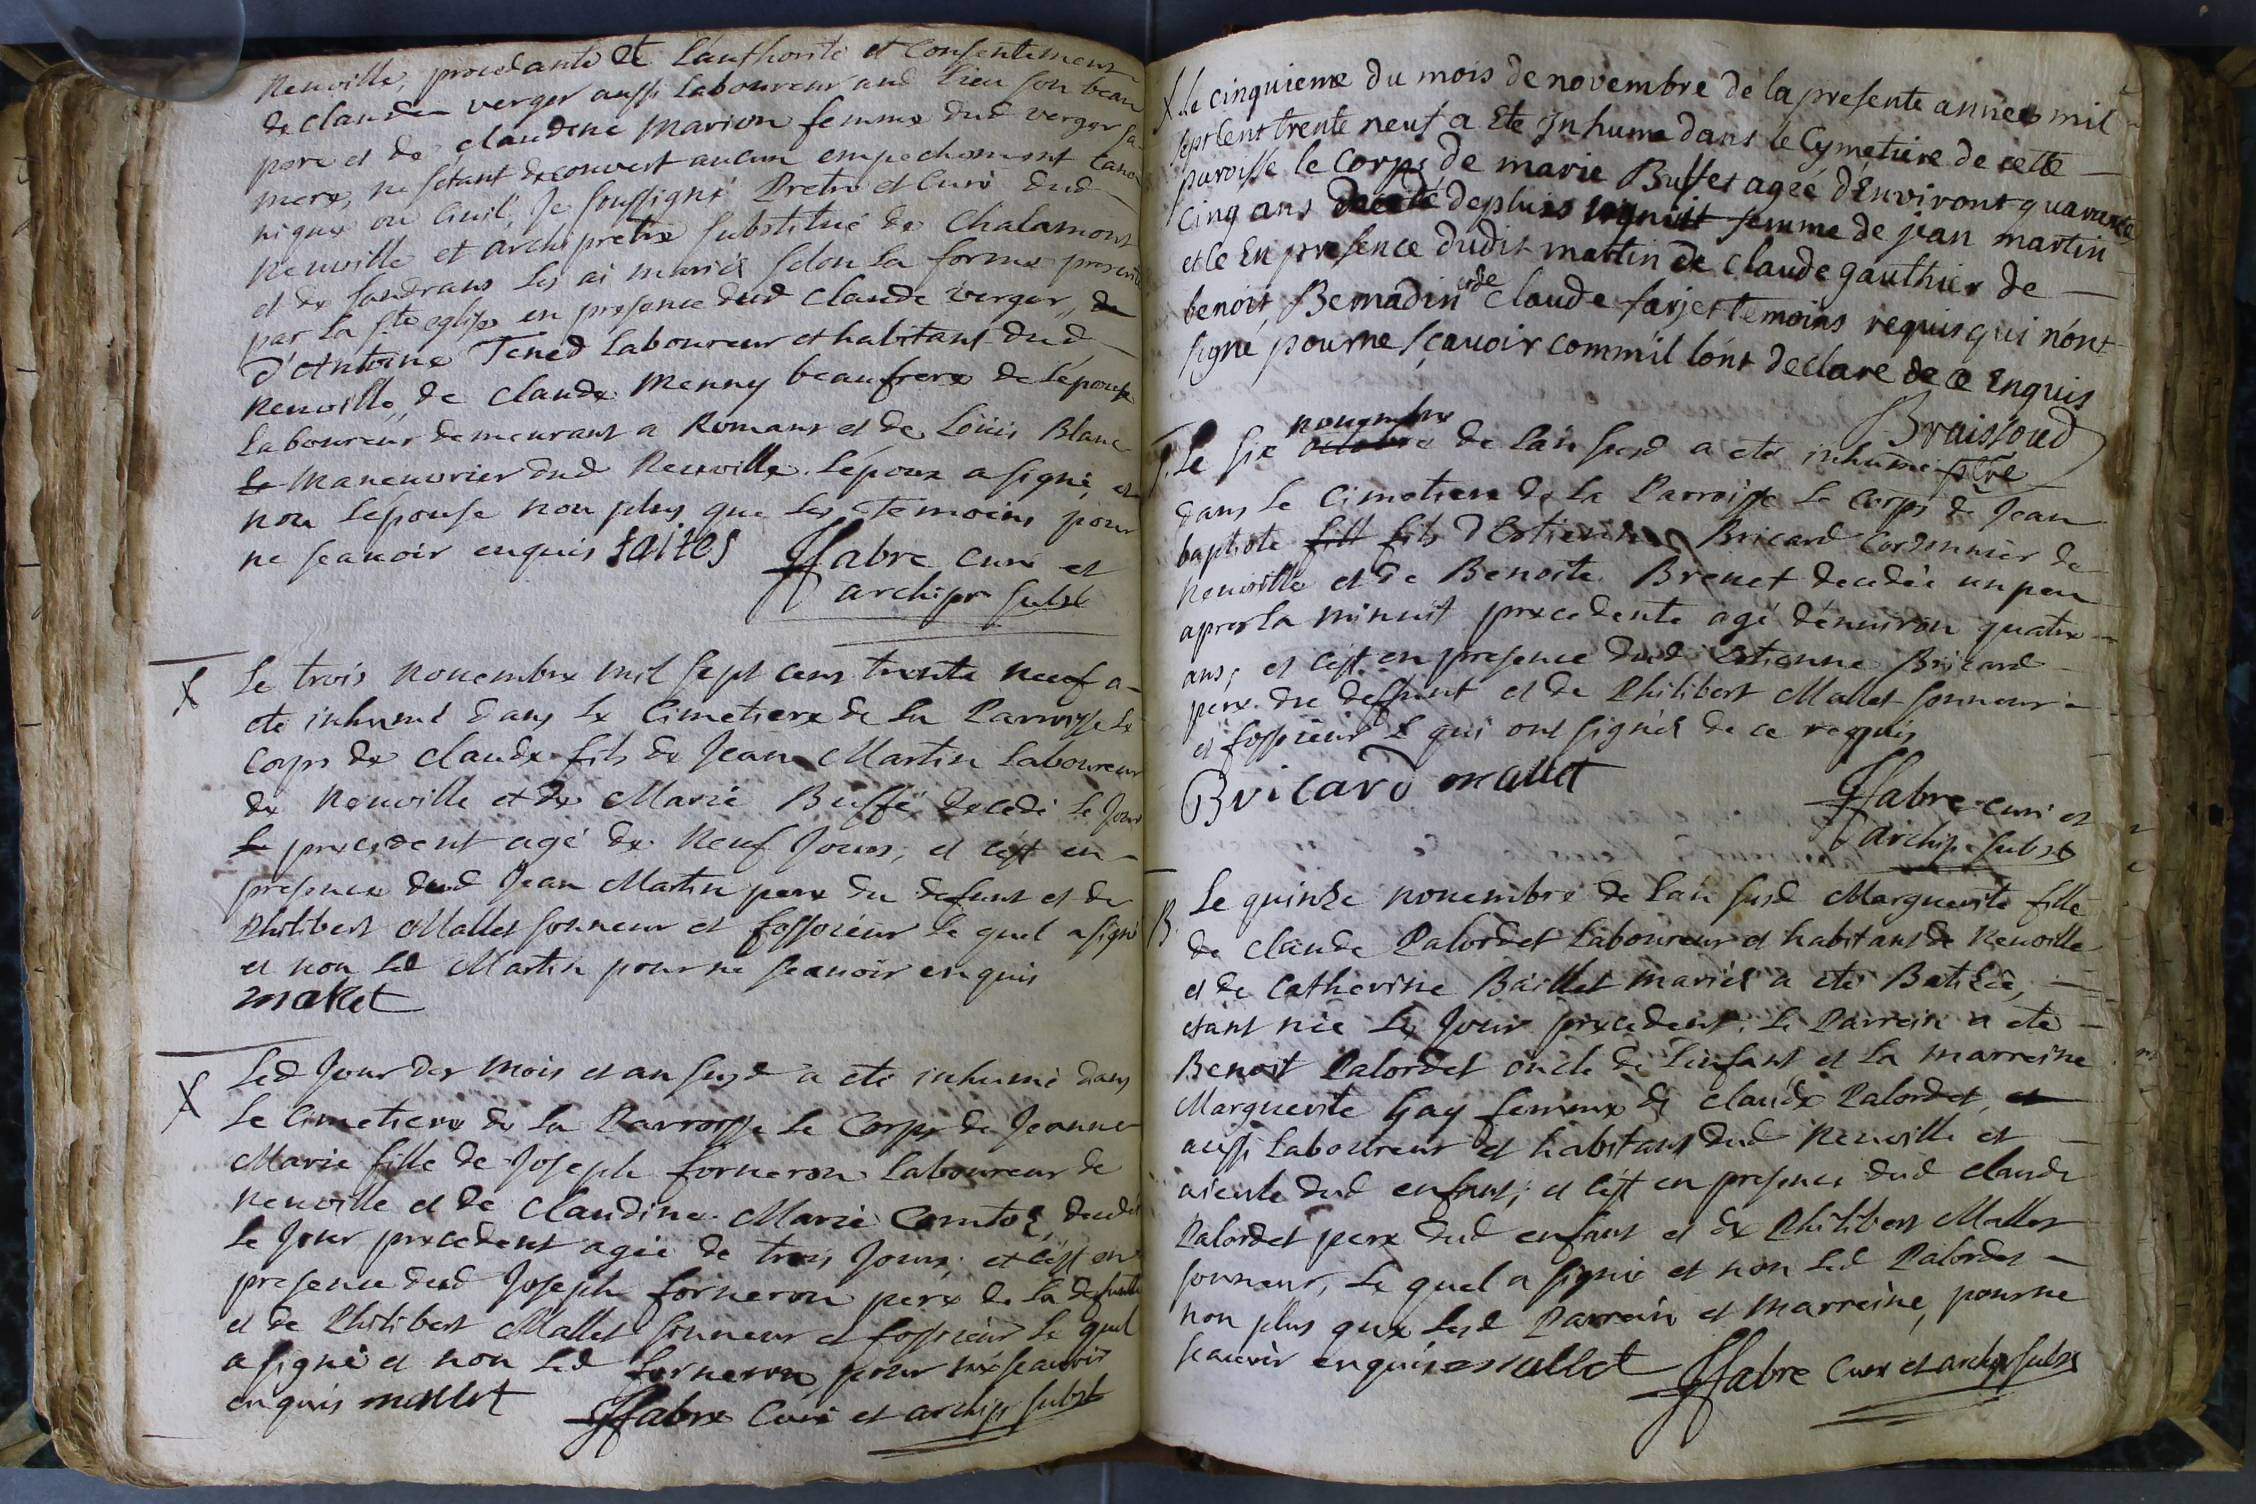 Neuville, procedante de L'authorité et Consentement
de claude verger aussi Laboureur aud Lieu son beau
pere et de claudine Marion femme dud verger sa
mere, ne s'etant decouvert aucun empechement Cano
nique ou Civil, Je soussigné Pretre et Curé dud
Neuville et archipretre substitué de Chalamont
et de sandrans les ai mariés selon La forme prescrite
par La ste eglise en presence dud Claude verger, de
d'Antoine Tened Laboureur et habitant dud
Neuville, de Claude Menny beaufrere de L'epouse
Laboureur demeurant a Romans et de Loüis Blanc
Le Maneuvrier dud Neuville. L'epoux a signé, et
non L'epouse non plus que Les temoins pour
ne scauoir enquis faites
Ffabre curé et
archipr subst
X Le trois novembre mil sept cens trente neuf a
eté inhumé dans Le Cimetiere de La Parroisse Le
Corps de claude fils de Jean Martin Laboureur
de Neuville et de Marie Buffé decedé Le Jour
Le precedent agé de Neuf Jours, et c'est en
presence dud Jean Martin pere du defunt et de
Philibert Mallet sonneur et fossoieur Le quel a signé
et non Led Martin pour ne scauoir enquis
mallet
X Led Jour des mois et an susd a eté inhumé dans
Le Cimetiere de La Parroisse Le Corps de Jeanne
Marie fille de Joseph forneron Laboureur de
Neuville et de Claudine Marie Comtoz, decedée
Le Jour precedent agée de trois Jours, et c'est en
presence dud Joseph forneron pere de La defunte
et de Philibert Mallet sonneur et fossoieur Le quel
a signé et non Led forneron pour ne scauoir
enquis mallet Ffabre Curé et archipr subst
X Le cinquieme du mois de novembre de la presente annee mil
sept cent trente neuf a Ete Inhume dans le Cymetiere de cette
paroisse le Corps de marie Buffet agée d'Environt quarante
cinq ans decede depluis femme de jean martin
et ce En presence dudit martin de claude gauthier de
benoit Bernadin et de Claude farjet temoins requis qui n'ont
signe pour ne sçavoir comm il lont declare de ce Enquis
Braissoud
ptre
Le six novembre octobre de L'an susd a eté inhumé
dans Le Cimetiere de La Parroisse Le Corps de Jean
baptiste fill fils d'Estienne Bricard Cordonnier de
Neuville et de Benoite Brenet decedée un peu
apres La minuit precedente agé d'enuiron quatre
ans, et c'est en presence dud Estienne Bricard
pere du deffunt et de Philibert Mallet sonneur
et fossoieur qui ont signés de ce requis
Bricard mallet
Ffabre curé et
archip. subst
B. Le quinze novembre de L'an susd Marguerite fille
de Claude Palordet Laboureur et habitant de Neuville
et de Catherine Baillet mariés a eté Batizée,
etant née Le Jour precedent. Le Parrein a eté
Benoit Palordet oncle de L'enfant et La marreine
Marguerite Gay femme de claude Palordet, et
aussi Laboureur et habitant dud Neuville et
aieule dud enfant; et c'est en presence dud claude
Palordet pere dud enfant et de Philibert Mallet
sonneur, Le quel a signé et non Led Palordet
non plus que Lesd Parrein et Marreine, pour ne
scauoir enquis mallet Ffabre Curé et archipr subst